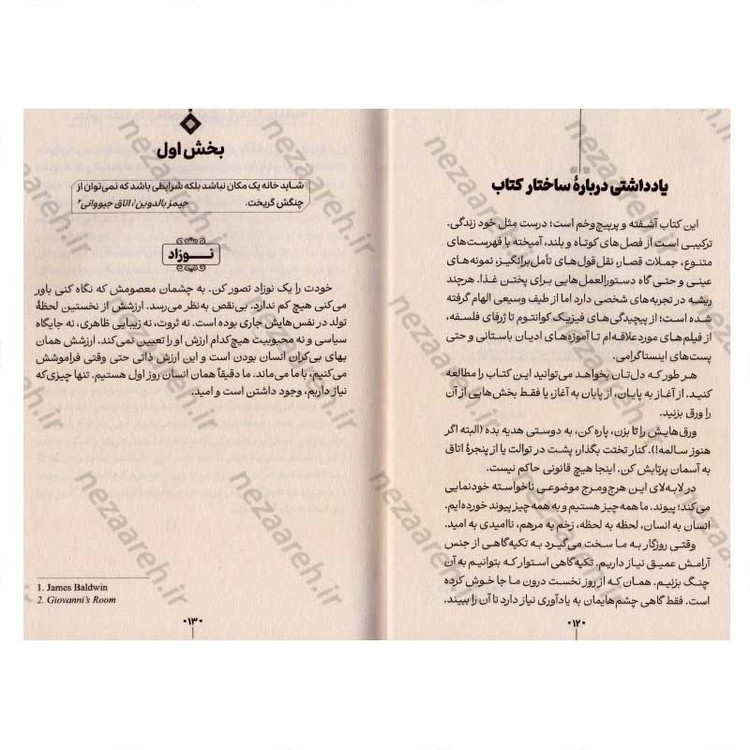 یادداشتی دربارهٔ ساختار کتاب
این کتاب آشفته و پرپیچ‌وخم است؛ درست مثل خود زندگی.
ترکیبی است از فصل‌های کوتاه و بلند، آمیخته با فهرست‌های
متنوع، جملات قصار، نقل‌قول‌های تأمل‌برانگیز، نمونه‌های
عینی و حتی گاه دستورالعمل‌هایی برای پختن غذا. هرچند
ریشه در تجربه‌های شخصی دارد اما از طیف وسیعی الهام گرفته
شده است؛ از پیچیدگی‌های فیزیک کوانتوم تا ژرفای فلسفه،
از فیلم‌های موردعلاقه‌ام تا آموزه‌های ادیان باستانی و حتی
پست‌های اینستاگرامی.
هر طور که دل‌تان بخواهد می‌توانید این کتاب را مطالعه
کنید. از آغاز به پایان، از پایان به آغاز، یا فقط بخش‌هایی از آن
را ورق بزنید.
ورق‌هایش را تا بزن، پاره کن، به دوستی هدیه بده (البته اگر
هنوز سالمه!). کنار تختت بگذار، پشت در توالت یا از پنجرهٔ اتاق
به آسمان پرتابش کن. اینجا هیچ قانونی حاکم نیست.
در لابه‌لای این هرج‌ومرج موضوعی ناخواسته خودنمایی
می‌کند؛ پیوند. ما همه‌چیز هستیم و به همه‌چیز پیوند خورده‌ایم.
انسان به انسان، لحظه به لحظه، زخم به مرهم، ناامیدی به امید.
وقتی روزگار به ما سخت می‌گیرد به تکیه‌گاهی از جنس
آرامش عمیق نیاز داریم. تکیه‌گاهی استوار که بتوانیم به آن
چنگ بزنیم. همان که از روز نخست درون ما جا خوش کرده
است. فقط گاهی چشم‌هایمان به یادآوری نیاز دارد تا آن را ببیند.
۰۱۲۰
بخش اول
شاید خانه یک مکان نباشد بلکه شرایطی باشد که نمی‌توان از
چنگش گریخت. جیمز بالدوین۱، اتاق جیووانی۲
نوزاد
خودت را یک نوزاد تصور کن. به چشمان معصومش که نگاه کنی باور
می‌کنی هیچ کم ندارد. بی‌نقص به‌نظر می‌رسد. ارزشش از نخستین لحظهٔ
تولد در نفس‌هایش جاری بوده است. نه ثروت، نه زیبایی ظاهری، نه جایگاه
سیاسی و نه محبوبیت هیچ‌کدام ارزش او را تعیین نمی‌کند. ارزشش همان
بهای بی‌کران انسان بودن است و این ارزش ذاتی حتی وقتی فراموشش
می‌کنیم، با ما می‌ماند. ما دقیقاً همان انسان روز اول هستیم. تنها چیزی‌که
نیاز داریم، وجود داشتن است و امید.
1. James Baldwin
2. Giovanni's Room
۰۱۳۰
nezaareh.ir